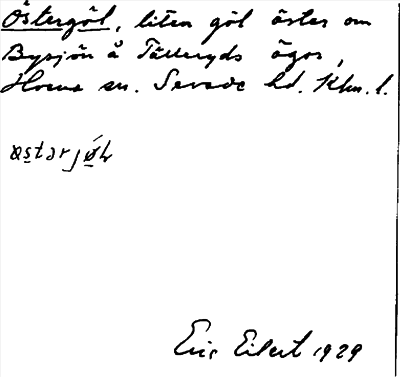 Östergöl, liten göl öster om
Bysjön å Tälleryds ägor,
Horna sn. Sevede hd. Klm. l.
østərj
Eric Eilert 1929